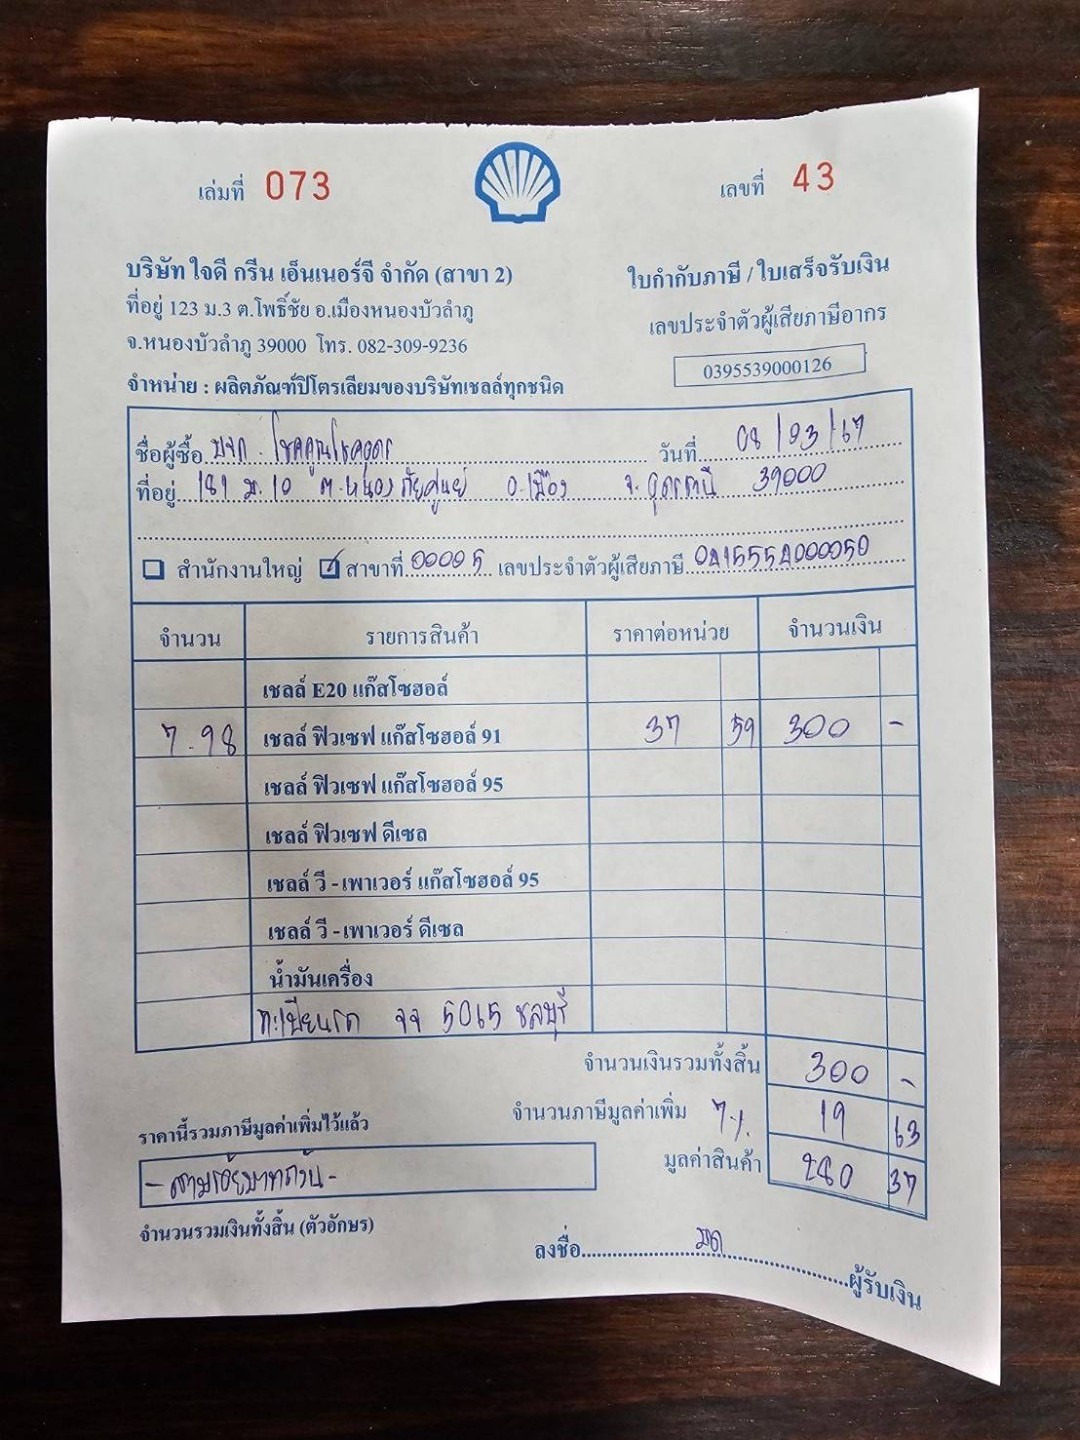 เล่มที่ 073
เลขที่ 43
บริษัท ใจดี กรีน เอ็นเนอร์จี จำกัด (สาขา 2)
ที่อยู่ 123 ม.3 ต.โพธิ์ชัย อ.เมืองหนองบัวลำภู
จ.หนองบัวลำภู 39000 โทร. 082-309-9236
จำหน่าย : ผลิตภัณฑ์ปิโตรเลียมของบริษัทเชลล์ทุกชนิด
ใบกำกับภาษี / ใบเสร็จรับเงิน
เลขประจำตัวผู้เสียภาษีอากร
0395539000126
ชื่อผู้ซื้อ บจก. โชคคูณโชคอุดร วันที่ 08/03/67
ที่อยู่ 181 ม.10 ต.หนองภัยศูนย์ อ.เมือง จ.อุดรธานี 39000
สำนักงานใหญ่ ☑ สาขาที่ 00005 เลขประจำตัวผู้เสียภาษี 0415554000050
จำนวน รายการสินค้า ราคาต่อหน่วย จำนวนเงิน
เชลล์ E20 แก๊สโซฮอล์
7.98 เชลล์ ฟิวเซฟ แก๊สโซฮอล์ 91 37 59 300 -
เชลล์ ฟิวเซฟ แก๊สโซฮอล์ 95
เชลล์ ฟิวเซฟ ดีเซล
เชลล์ วี - เพาเวอร์ แก๊สโซฮอล์ 95
เชลล์ วี - เพาเวอร์ ดีเซล
น้ำมันเครื่อง
ทะเบียนรถ จจ 5065 ชลบุรี
จำนวนเงินรวมทั้งสิ้น 300 -
จำนวนภาษีมูลค่าเพิ่ม 7% 19 63
มูลค่าสินค้า 280 37
ราคานี้รวมภาษีมูลค่าเพิ่มไว้แล้ว
- สามร้อยบาทถ้วน -
จำนวนรวมเงินทั้งสิ้น (ตัวอักษร)
ลงชื่อ ผู้รับเงิน